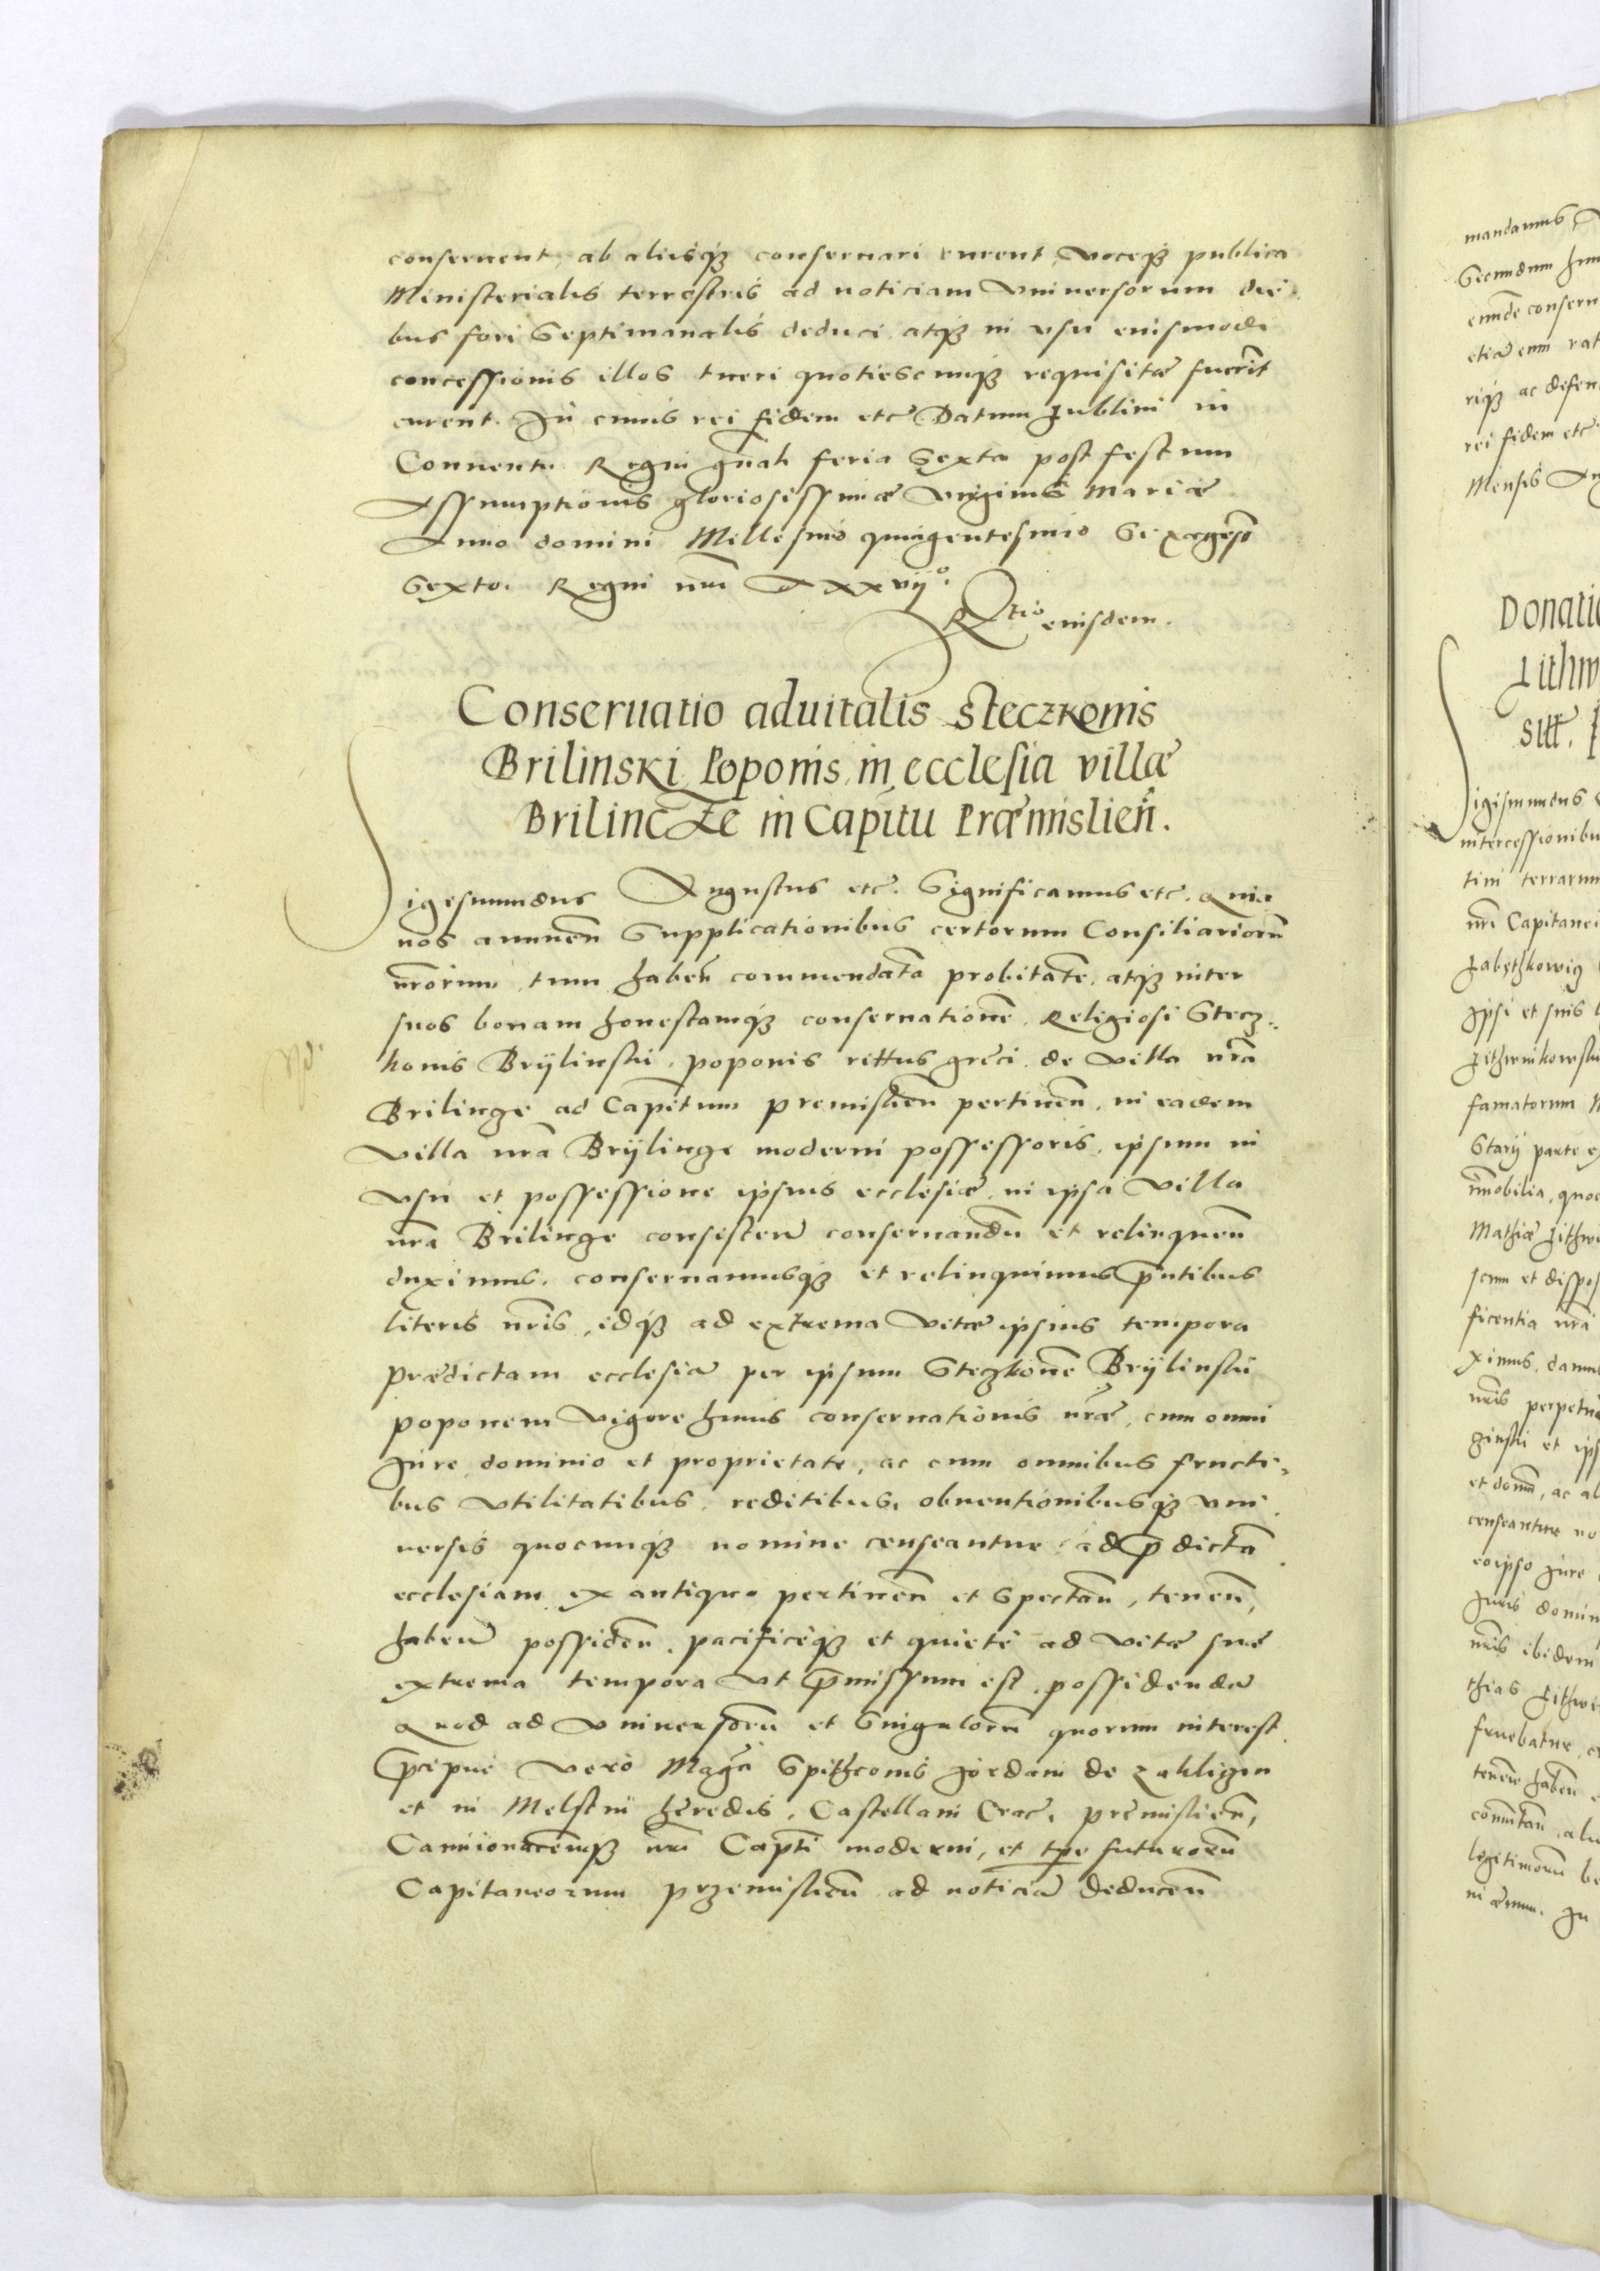 conseruent, ab aliisqȝ conseruari curent, voceqȝ publica
Ministerialis terrestris ad noticiam Vniuersorum die
bus fori Septimanalis deduci atqȝ in vsu eiusmodi
concessionis illos tueri quotiescunqȝ requisitæ fuerīt
curent. In cuius rei fidem etc̄ Datum Lublini in
Conuentu Regni gn̄ali feria Sexta post festum
Assumptionis gloriosissimæ virginis Mariæ
Anno domini Millesimo quingentesimo Sexagesō
Sexto. Regni nr̄i XXXvijº.
Rtio eiusdem.
Conseruatio aduitalis Steczkonis
Brilinski Poponis in ecclesia villæ
Brilincze in Capitu Præmislien̄.
Sigismundus Augustus etc̄. Significamus etc̄. Quia
nos annuen̄ Supplicationibus certorum Consiliariorū
nr̄orum, tum haben̄ commendatā probitatē atqȝ inter
suos bonam honestamqȝ conseruationē Religiosi Stecz-
konis Brylinski, poponis rittus græci de villa nr̄a
Brilinge ad Capitum premislien̄ pertinen̄, in eadem
villa nr̄a Brylinge moderni possessoris, ipsum in
vsu et possessione ipsius ecclesiæ in ipsa villa
nr̄a Brilinge consisten̄ conseruandū et relinquen̄
duximus. conseruamusqȝ et relinquimus p̄ntibus
literis nr̄is, idqȝ ad extrema vitæ ipsius tempora
prædictam ecclesiā per ipsum Steczkonē Brylinski
poponem vigore huius conseruationis nr̄æ, cum omni
Iure dominio et proprietate, ac cum omnibus fructi-
bus vtilitatibus, reditibus, obuentionibusqȝ vni
uersis quocunqȝ nomine censeantur ad p̄dictā
ecclesiam ex antiquo pertinen̄ et Spectan̄, tenen̄,
haben̄ possiden̄, pacificeqȝ et quiete ad vitæ suæ
extrema tempora vt p̄missum est, possidendā
Quod ad Vniuersorū et Singulorū quorum interest
p̄cipue vero Maḡci Spithconis Jordani de Zakliczin
et in Melstin heredis, Castellani Crac̄. premislien̄,
Camionacen̄qȝ nr̄i Capti moderni, et tpe futurorū
Capitaneorum przemislien̄ ad noticiā deducen̄
mandamus
Secundum
eundē conseru
rei fidem etc̄
Mensis
Donatio
intercessionibu
tini terrarum
nr̄i Capitanei
Ipsi et suis
famatorum
Stary parte
et dispos
ficentia nr̄a
ximus, damu
nr̄is perpetu
censeantur
eoipso iure
Iuris domin
nr̄is ibidem
fruebatur,
tenen̄ haben̄
legitimorū